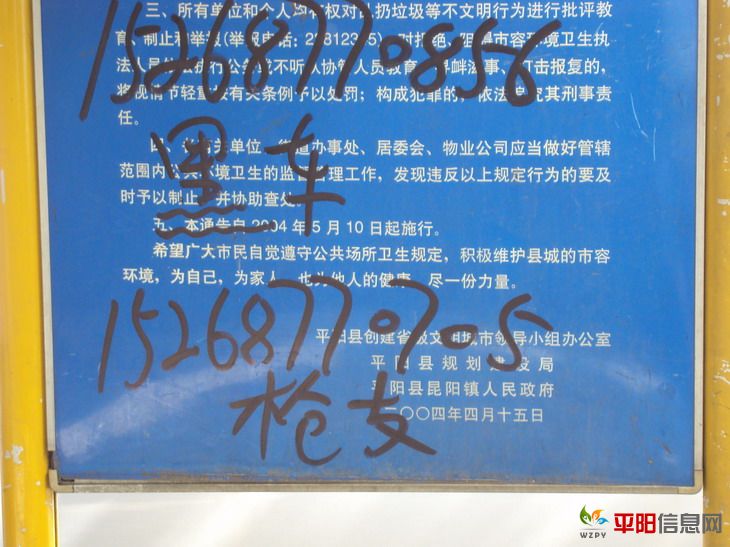 三、所有单位和个人均有权对乱扔垃圾等不文明行为进行批评教
育、制止和举报(举报电话:23812345)。对拒绝、阻碍市容环境卫生执
法人员依法执行公务或不听从协管人员教育、寻衅滋事、打击报复的,
将视情节轻重按有关条例予以处罚;构成犯罪的,依法追究其刑事责
任。
15268770856
黑车
四、各有关单位、街道办事处、居委会、物业公司应当做好管辖
范围内公共环境卫生的监督管理工作,发现违反以上规定行为的要及
时予以制止,并协助查处。
五、本通告自2004年5月10日起施行。
希望广大市民自觉遵守公共场所卫生规定,积极维护县城的市容
环境,为自己,为家人,也为他人的健康,尽一份力量。
15268770705
枪支
平阳县创建省级文明城市领导小组办公室
平阳县规划建设局
平阳县昆阳镇人民政府
二〇〇四年四月十五日
WZPY 平阳信息网